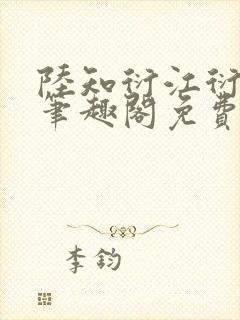 陸知衍江衍
筆趣閣免費
李鈞